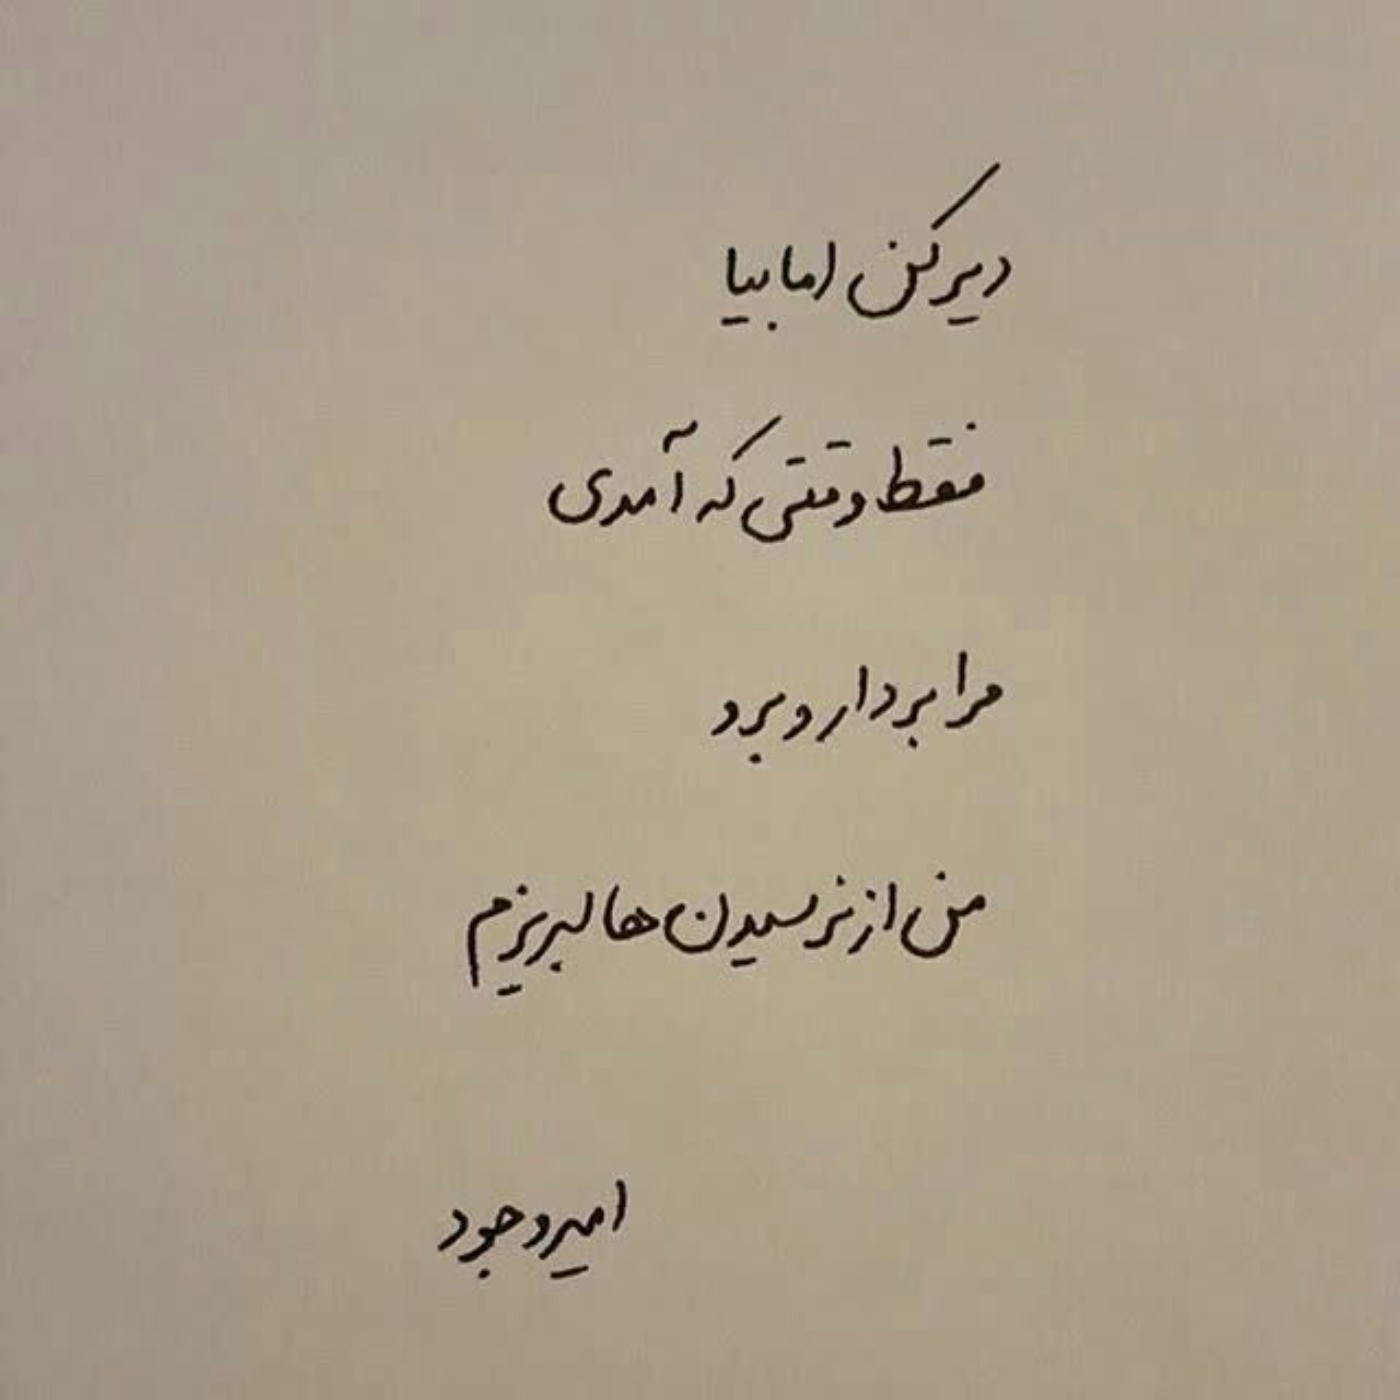 دیر کن اما بیا
فقط وقتی که آمدی
مرا بردار و برو
من از نرسیدن ها لبریزم
امیر وجود